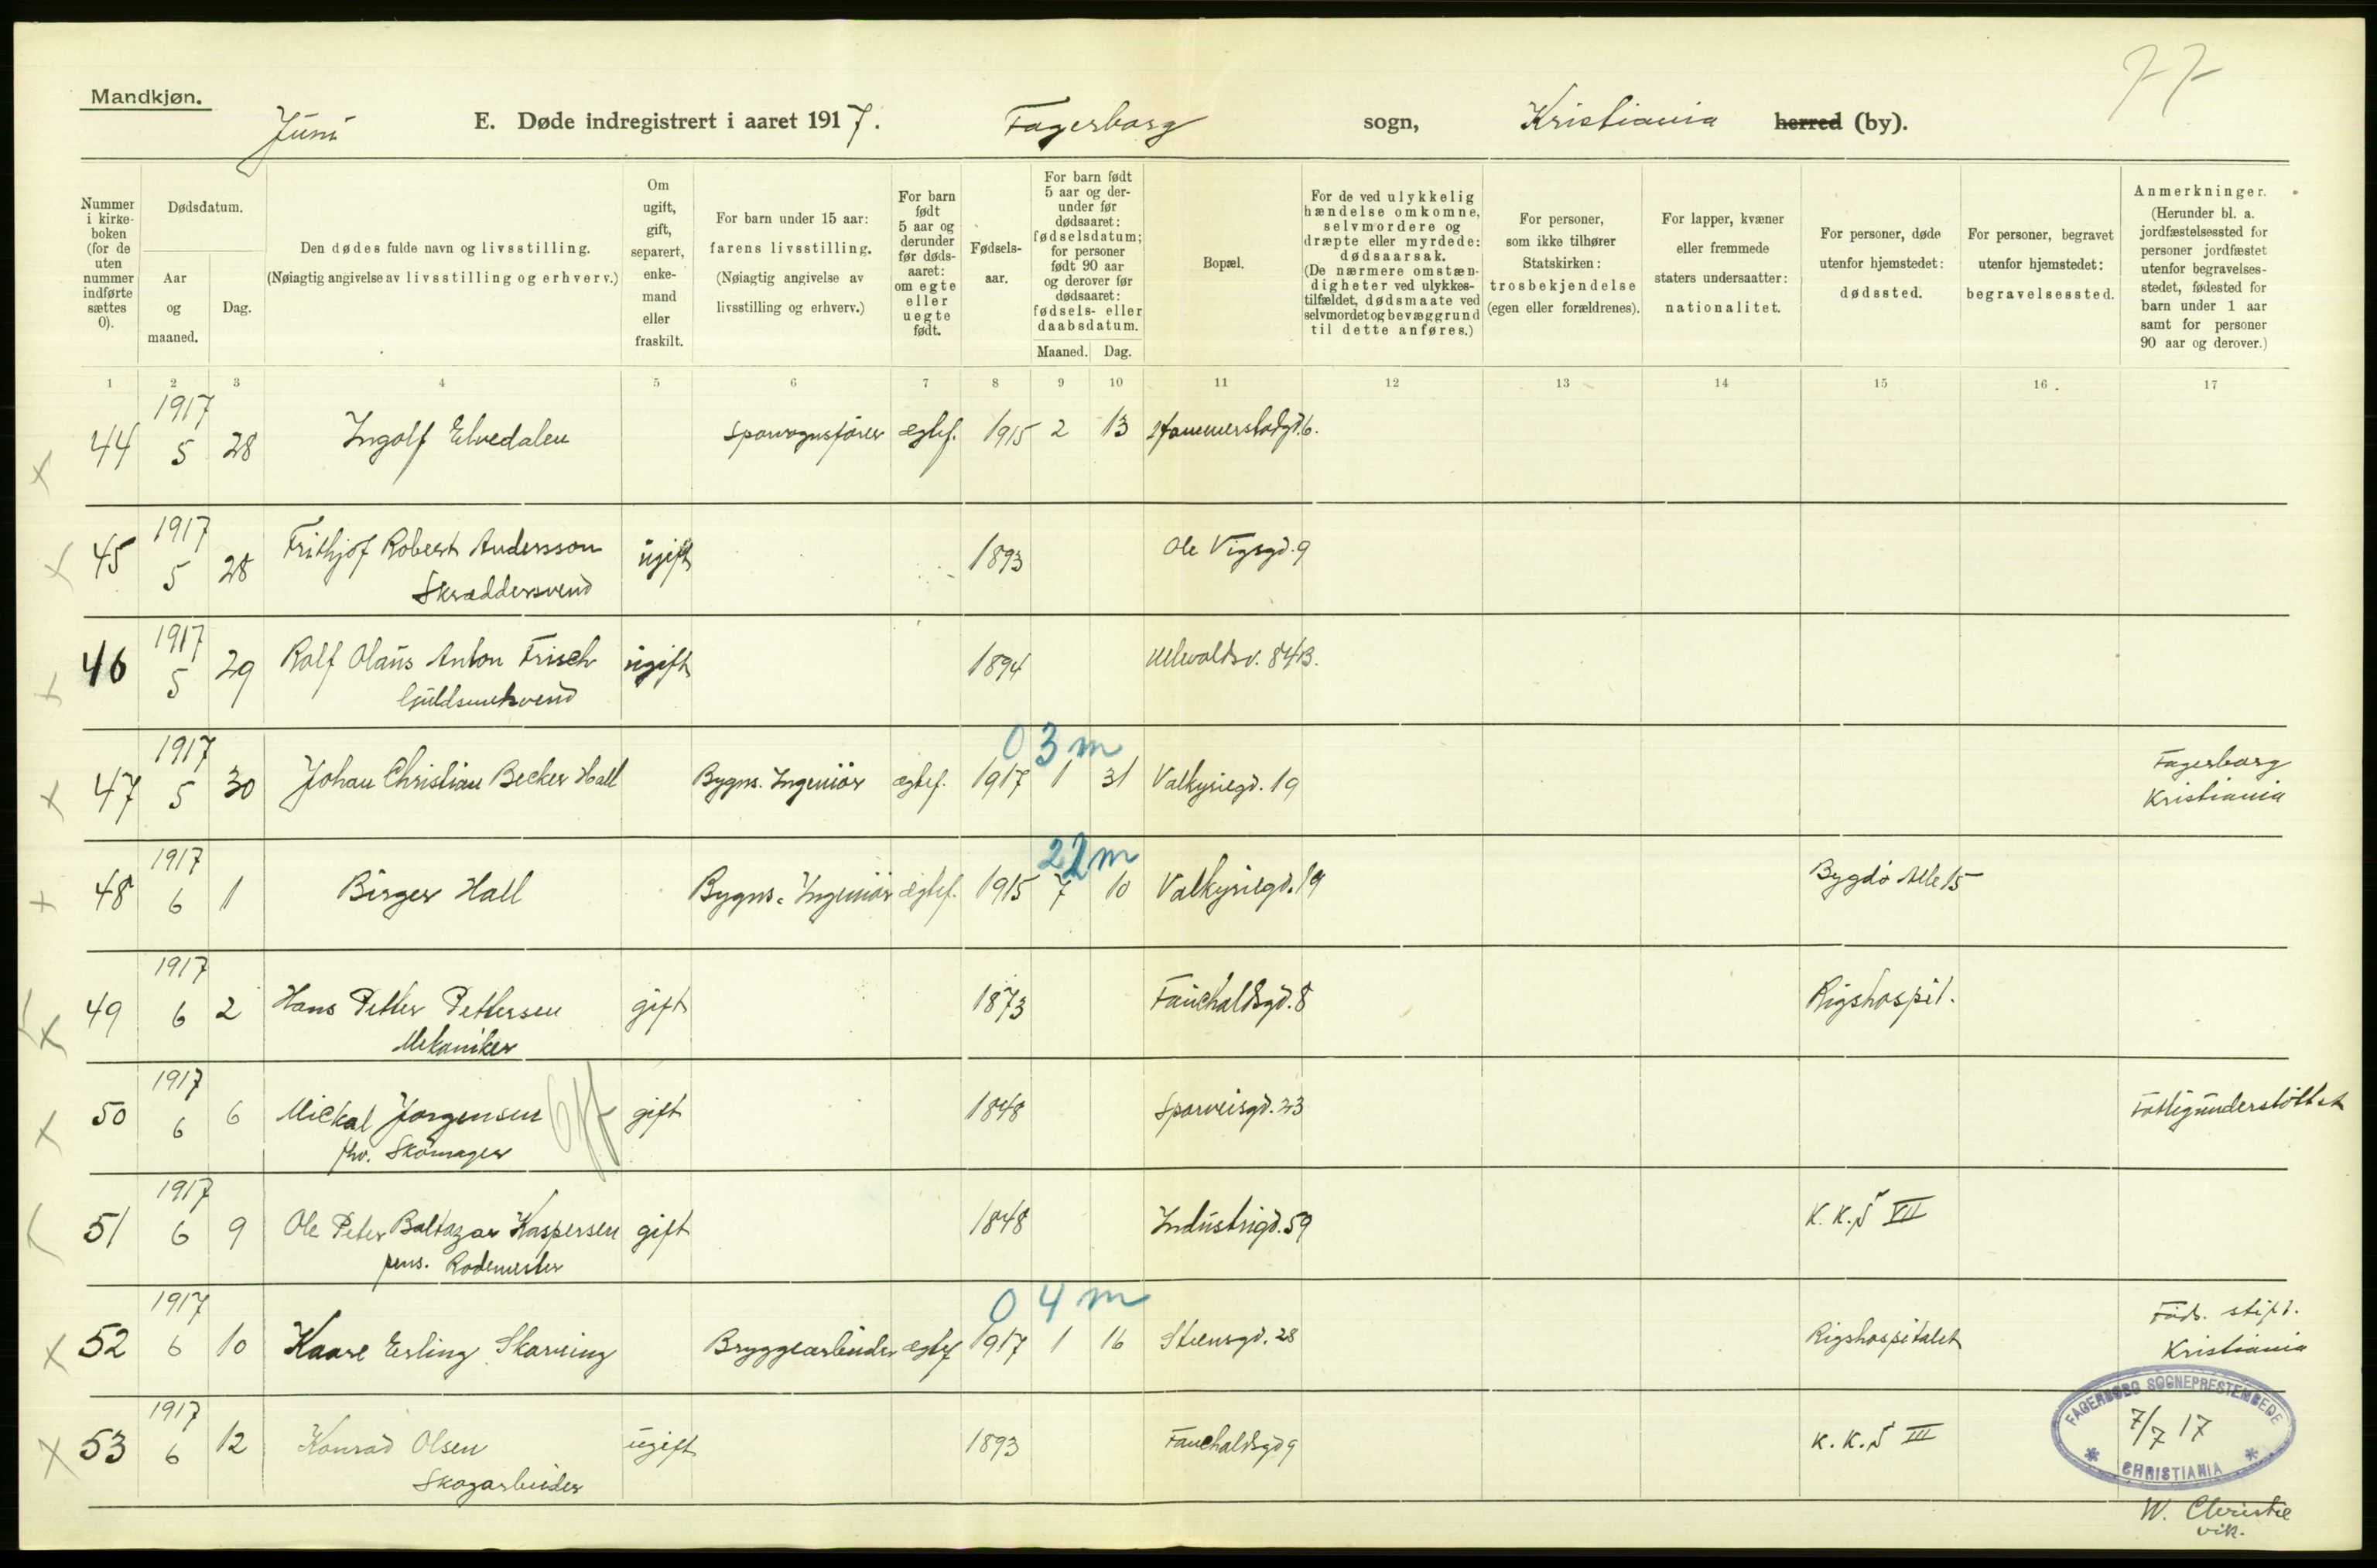 77
Mandkjøn.
Juni E. Døde indregistrert i aaret 1917. Fagerborg sogn, Kristiania herred (by).
Nummer i kirkeboken (for de uten nummer indførte sættes 0).
Dødsdatum.
Aar og maaned.
Dag.
Den dødes fulde navn og livsstilling.
(Nøiagtig angivelse av livsstilling og erhverv.)
Om ugift, gift, separert, enkemand eller fraskilt.
For barn under 15 aar: farens livsstilling. (Nøiagtig angivelse av livsstilling og erhverv.)
For barn født 5 aar og derunder før dødsaaret: om egte eller uegte født.
Fødselsaar.
For barn født 5 aar og derunder før dødsaaret: fødselsdatum; for personer født 90 aar og derover før dødsaaret: fødsels- eller daabsdatum.
Maaned. Dag.
Bopæl.
For de ved ulykkelig hændelse omkomne, selvmordere og dræpte eller myrdede: dødsaarsak. (De nærmere omstændigheter ved ulykkestilfældet, dødsmaate ved selvmordet og bevæggrund til dette anføres.)
For personer, som ikke tilhører Statskirken: trosbekjendelse (egen eller forældrenes).
For lapper, kvæner eller fremmede staters undersaatter: nationalitet.
For personer, døde utenfor hjemstedet: dødssted.
For personer, begravet utenfor hjemstedet: begravelsessted.
Anmerkninger. (Herunder bl. a. jordfæstelsessted for personer jordfæstet utenfor begravelsesstedet, fødested for barn under 1 aar samt for personer 90 aar og derover.)
1 2 3 4 5 6 7 8 9 10 11 12 13 14 15 16 17
44 1917 5 28 Ingolf Elvedalen Sporvognsfører ægtef. 1915 2 13 Hammerstadgd. 6.
45 1917 5 28 Frithjof Robert Andersson ugift 1893 Ole Vigsgd. 9
Skræddersvend
46 1917 5 29 Rolf Olaus Anton Frisch ugift 1894 Ullevoldsv. 84B.
Guldsmedsvend
0 3 m
47 1917 5 30 Johan Christian Becker Hall Bygns. Ingeniør ægtef. 1917 1 31 Valkyriegd. 19 Fagerborg
Kristiania
22 m
48 1917 6 1 Birger Hall Bygns. Ingeniør ægtef. 1915 7 10 Valkyriegd. 19 Bygdø Alle 15
49 1917 6 2 Hans Petter Pettersen gift 1873 Fauchaldsgd. 8 Rigshospit.
Mekaniker
50 1917 6 6 Mickal Jørgensen gift 1848 Sporveisgd. 23 Fattigunderstøttet
fhv. Skomager
51 1917 6 9 Ole Peter Baltazar Kaspersen gift 1848 Industrigd. 59 K.K.S VII
pens. Rodemester
0 4 m
52 1917 6 10 Kaare Erling Skarning Bryggearbeider ægtef 1917 1 16 Stensgd. 28 Rigshospitalet Føds. stift.
Kristiania
53 1917 6 12 Konrad Olsen ugift 1893 Fauchaldsgd 9 K.K.S III
Skogarbeider
FAGERBORG SOGNEPRESTEMBEDE
7/7 17
CHRISTIANIA
W. Christie
vik.